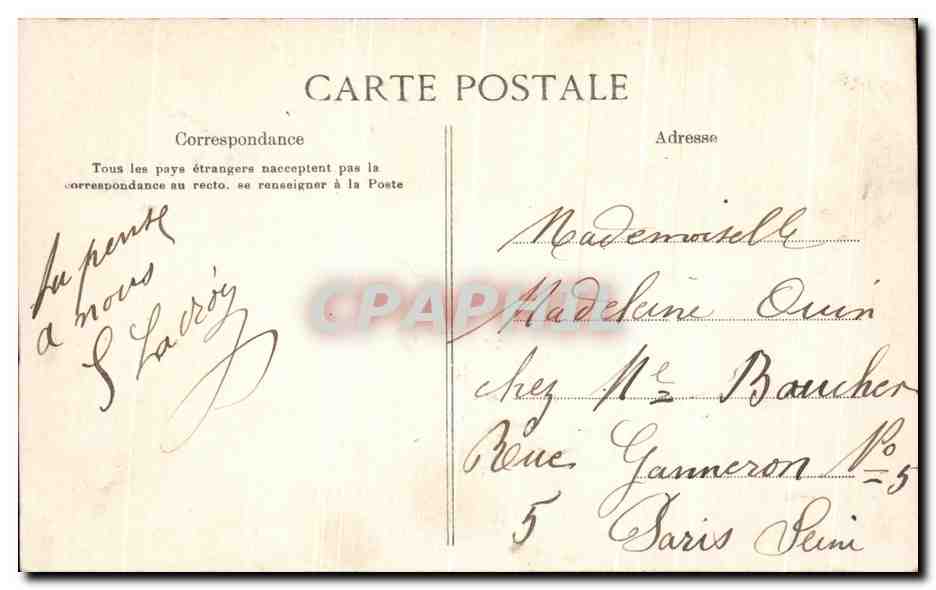 CARTE POSTALE
Correspondance
Tous les pays étrangers nacceptent pas la
correspondance au recto. se renseigner à la Poste
pense
a nous
S
Adresse
Mademoiselle
Madeleine Ouin
chez Me Boucher
Rue Ganneron No 5
5 Paris Seine
CPAPHIL